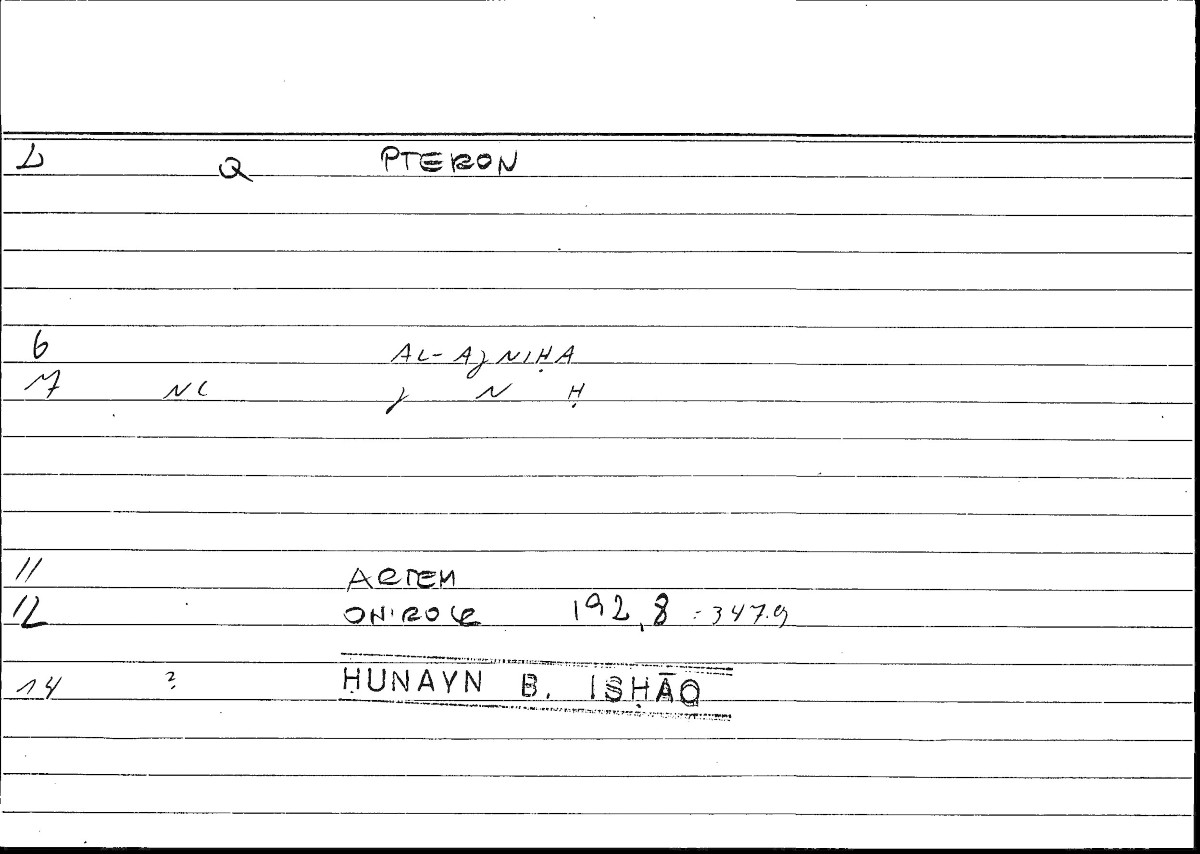 L Q PTERON
6 AL-AJNIḤA
7 NC J N Ḥ
11 ARTEM
12 ONIROCR 192,8 = 347.9
14 ? ḤUNAYN B. ISḤĀQ